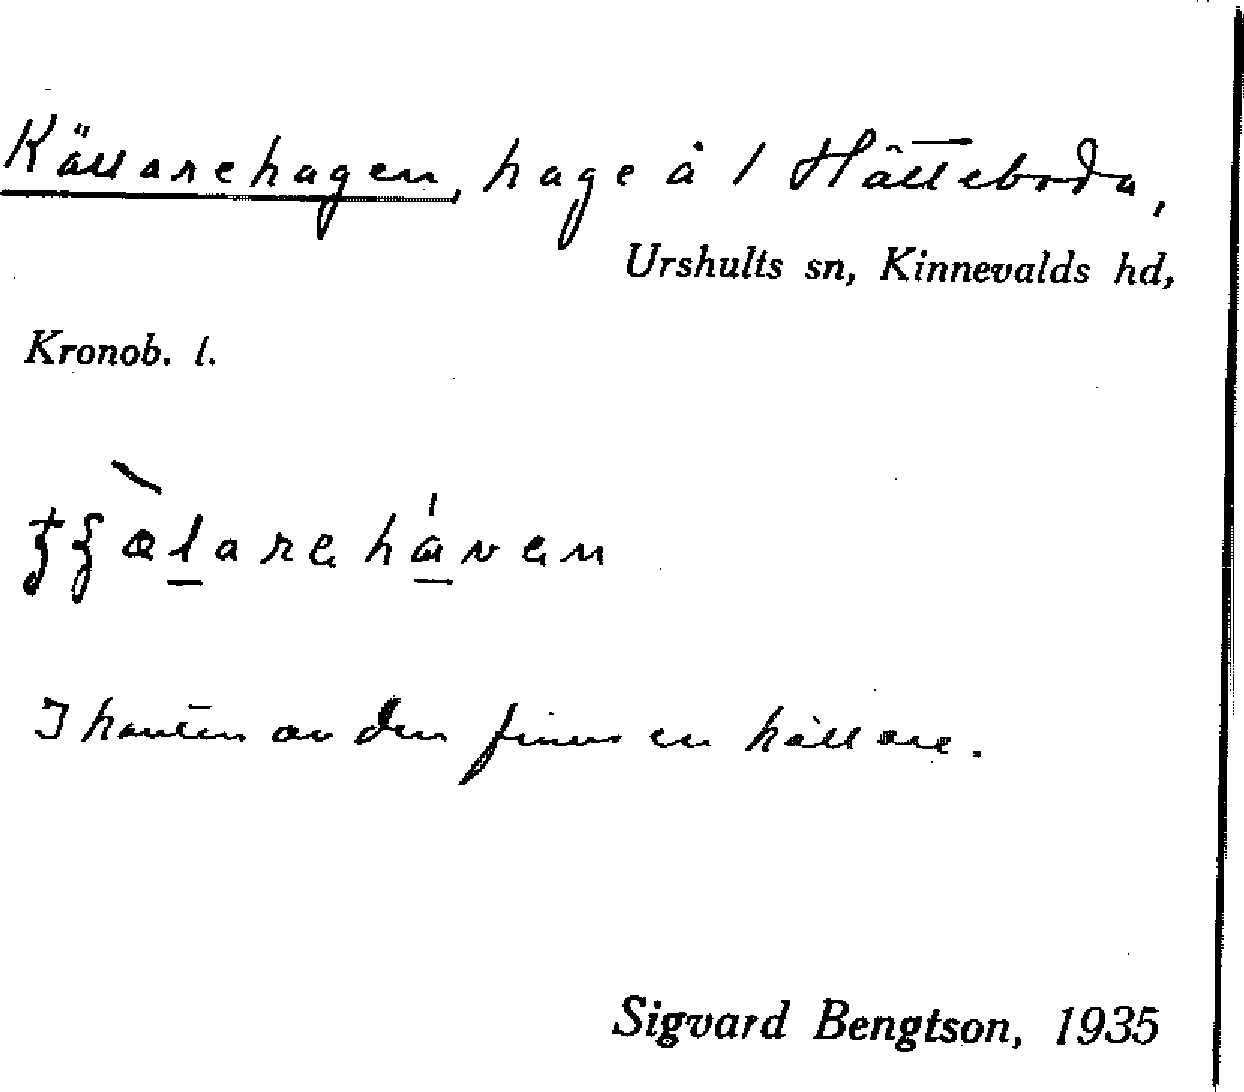 Källarehagen, hage å 1 Hätteboda,
Urshults sn, Kinnevalds hd,
Kronob. l.
I kanten av den finns en källare.
Sigvard Bengtson, 1935